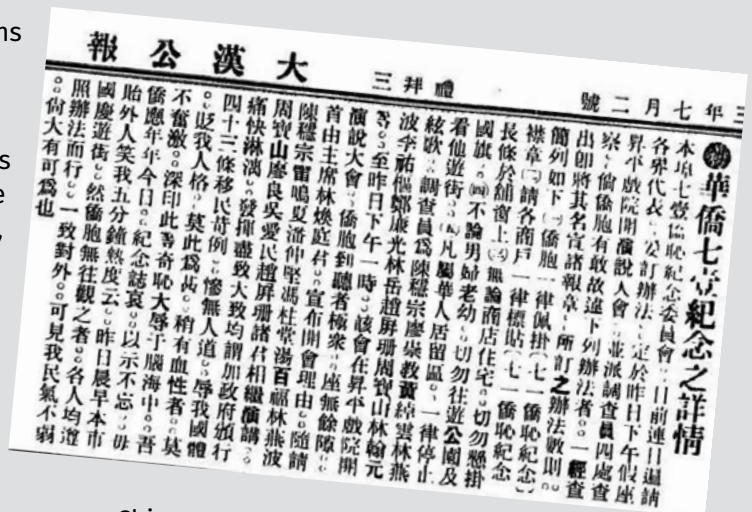 年七月二號
禮拜三
大漢公報
華僑七壹紀念之詳情
本埠七壹僑恥紀念委員會。日前連日邀請
各界代表。妥訂辦法。定於昨日下午假座
昇平戲院開演說大會。並派調查員四處查
察。倘僑胞有敢故違下列辦法者。一經查
出卽將其名宣諸報章。所訂之辦法數則。
簡列如下㈠僑胞一律佩掛〔七一僑恥紀念〕
襟章㈡請各商戶一律標貼〔七一僑恥紀念〕
長條於舖窗上㈢無論商店住宅。切勿懸掛
國旗。㈣不論男婦老幼。切勿往遊公園及
看他遊街。㈤凡屬華人居留區。一律停止
絃歌。調查員爲陳穩宗廖崇教黃綽雲林燕
波李祐樞鄭康光林岳趙屏珊周寶山林翰元
等。至昨日下午一時。該會在昇平戲院開
演說大會。僑胞到聽者極衆。座無餘隙。
首由主席林煥庭君。宣布開會理由。隨請
陳穩宗雷鳴夏潘仲堅馮杜堂湯百福林燕波
周寶山廖良吳愛民趙屏珊諸君相繼演講。
痛快淋漓。發揮盡致大致均謂加政府頒行
四十三條移民苛例。慘無人道。辱我國體
。貶我人格。莫此爲甚。稍有血性者。莫
不奮激。深印此奇恥大辱于腦海中。吾
僑應年年今日。紀念誌哀。以示不忘。毋
貽外人笑我五分鐘熱度云。昨日晨早本市
國慶遊街。然僑胞無往觀之者。各人均遵
照辦法而行。一致對外。可見我民氣不弱
。尙大有可爲也